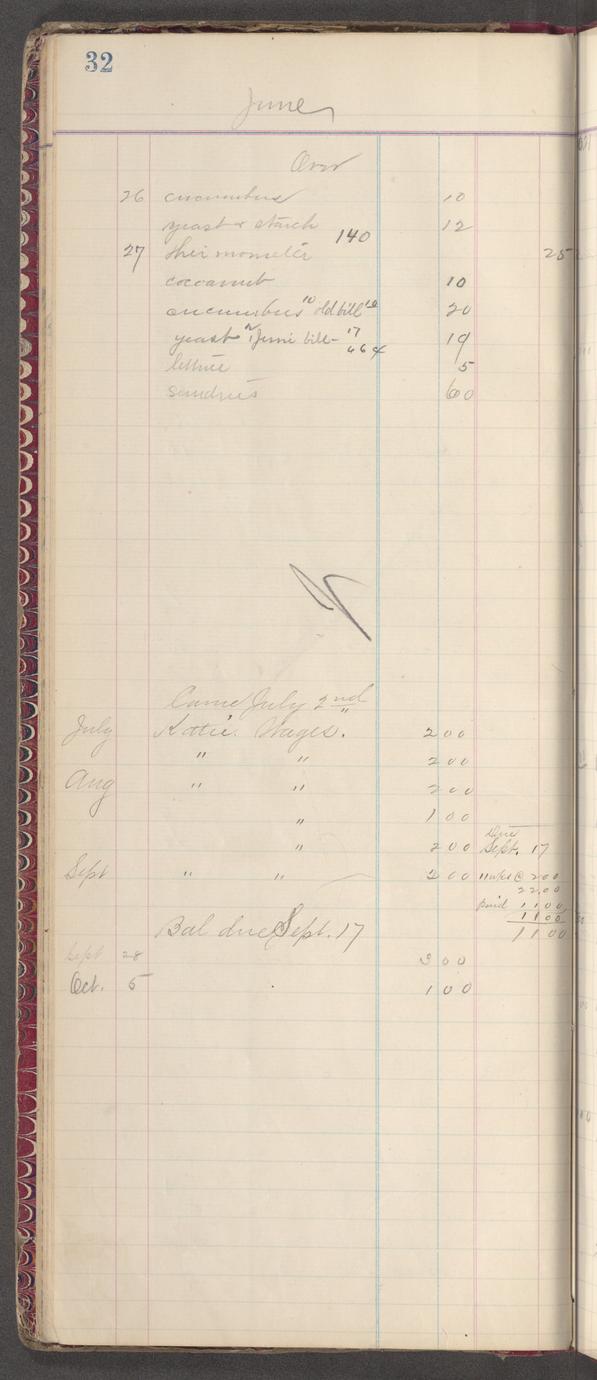 32
June
Over
26 cucumbers 10
yeast & starch 12
140
27 thermometer 25
cocoanut 10
cucumbers 10 old bill 10 20
yeast 2 June bill - 17 19
464
lettuce 5
sundries 60
Came July 2nd
July Katie Wages. 200
" " 200
Aug " " 200
" 100
Due
" 200 Sept. 17
Sept " " 200 11 wks @ 200
2200
Paid 1100
1100
Bal due Sept. 17 1100
Sept 28 300
Oct. 5 100